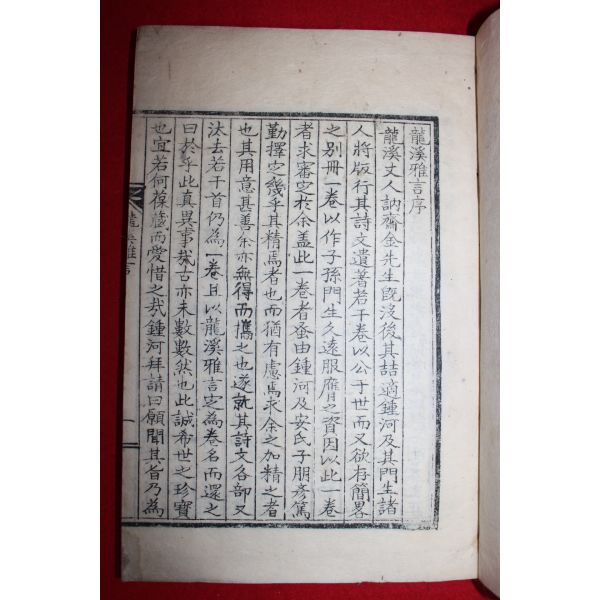 龍溪雅言序
龍溪丈人訥齋金先生旣沒後其喆適鍾河及其門生諸
人將版行其詩文遺著若干卷以公于世而又欲存簡畧
之別冊一卷以作子孫門生久遠服膺之資因以此一卷
者求審定於余盖此一卷者蚤由鍾河及安氏子朋彥篤
勤擇定幾乎其精焉者也而猶有慮焉求余之加精之者
也其用意甚善余亦無得而擕之也遂就其詩文各部又
汰去若干首仍為一卷且以龍溪雅言定為卷名而還之
曰於乎此真異事哉古亦未數數然也此誠希世之珍寶
也宜若何葆藏而愛惜之哉鍾河拜請曰願聞其旨乃為
龍溪雅言
一